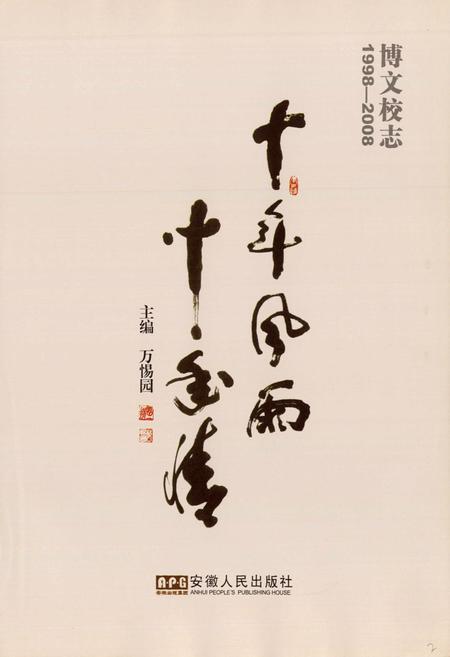 博文校志
1998—2008
十年风雨
十年情
主编 万惕园
APG 安徽人民出版社
安徽出版集团 ANHUI PEOPLE'S PUBLISHING HOUSE
2